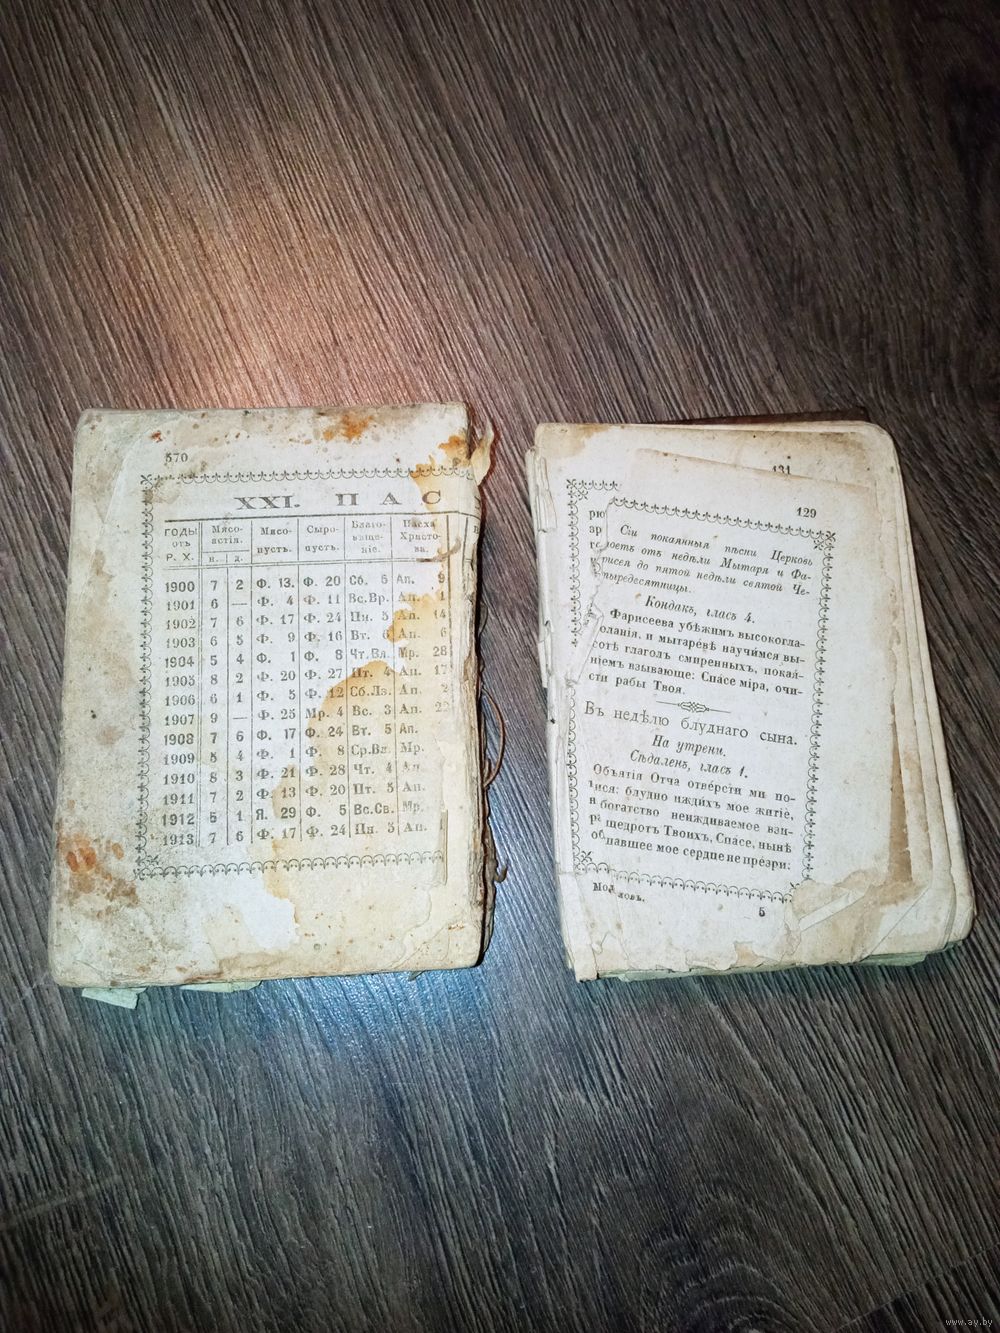 570
XXI. ПАС
ГОДЫ отъ Р. Х. Мясоястія. н. д. Мясопустъ. Сыропустъ. Благовѣщеніе. Пасха Христова.
1900 7 2 Ф. 13. Ф. 20 Сб. 5 Ап. 9
1901 6 — Ф. 4 Ф. 11 Вс.Вр. Ап. 1
1902 7 6 Ф. 17 Ф. 24 Пн. 5 Ап. 14
1903 6 5 Ф. 9 Ф. 16 Вт. 6 Ап. 6
1904 5 4 Ф. 1 Ф. 8 Чт.Вл. Мр. 28
1905 8 2 Ф. 20 Ф. 27 Пт. 4 Ап. 17
1906 6 1 Ф. 5 Ф. 12 Сб.Лз. Ап. 2
1907 9 — Ф. 25 Мр. 4 Вс. 3 Ап. 22
1908 7 6 Ф. 17 Ф. 24 Вт. 5 Ап.
1909 5 4 Ф. 1 Ф. 8 Ср.Вл. Мр.
1910 8 3 Ф. 21 Ф. 28 Чт. 4 Ап.
1911 7 2 Ф. 13 Ф. 20 Пт. 5 Ап.
1912 5 1 Я. 29 Ф. 5 Вс.Св. Мр.
1913 7 6 Ф. 17 Ф. 24 Пн. 5 Ап.
131
129
Сіи покаянныя пѣсни Церковь
поетъ отъ недѣли Мытаря и Фа-
рисея до пятой недѣли святой Че-
тыредесятницы.
Кондакъ, гласъ 4.
Фарисеева убѣжимъ высокогла-
голанія, и мытаре́вѣ научи́мся вы-
сотѣ глаголъ смиренныхъ, покая-
ніемъ взывающе: Спа́се мі́ра, очи-
сти рабы Твоя.
Въ недѣлю блуднаго сына.
На утрени.
Сѣдаленъ, гласъ 1.
Объятія Отча отве́рсти ми по-
тщися: блудно иждихъ мое житіе,
богатство неиждиваемое взи-
щедротъ Твоихъ, Спа́се, нынѣ
обнищавшее мое сердце не пре́зри:
5
www.ay.by